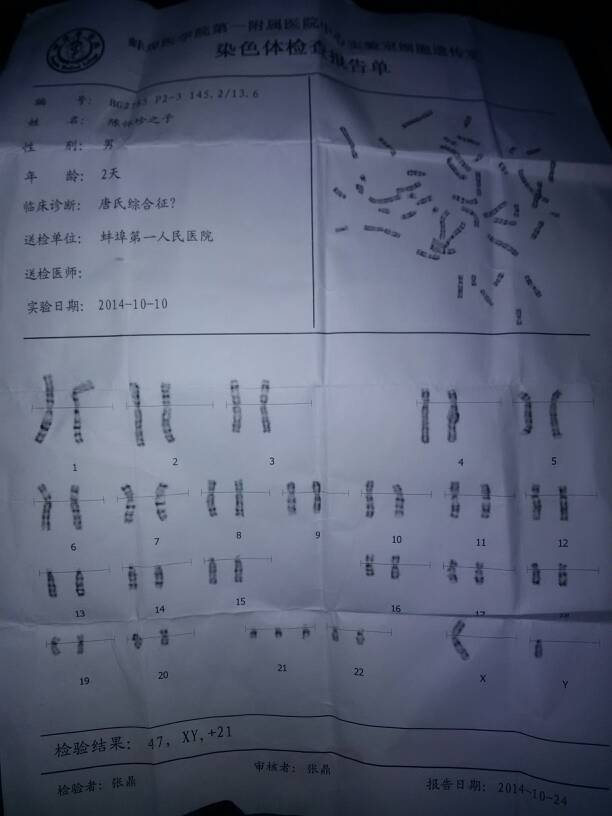 蚌埠医学院第一附属医院中心实验室细胞遗传室
染色体检查报告单
编 号: P2-3 145.2/13.6
姓 名: 之子
性 别: 男
年 龄: 2天
临床诊断: 唐氏综合征?
送检单位: 蚌埠第一人民医院
送检医师:
实验日期: 2014-10-10
1 2 3 4 5
6 7 8 9 10 11 12
13 14 15 16 17
19 20 21 22 X Y
检验结果: 47, XY,+21
检验者: 张鼎 审核者: 张鼎 报告日期: 2014-10-24